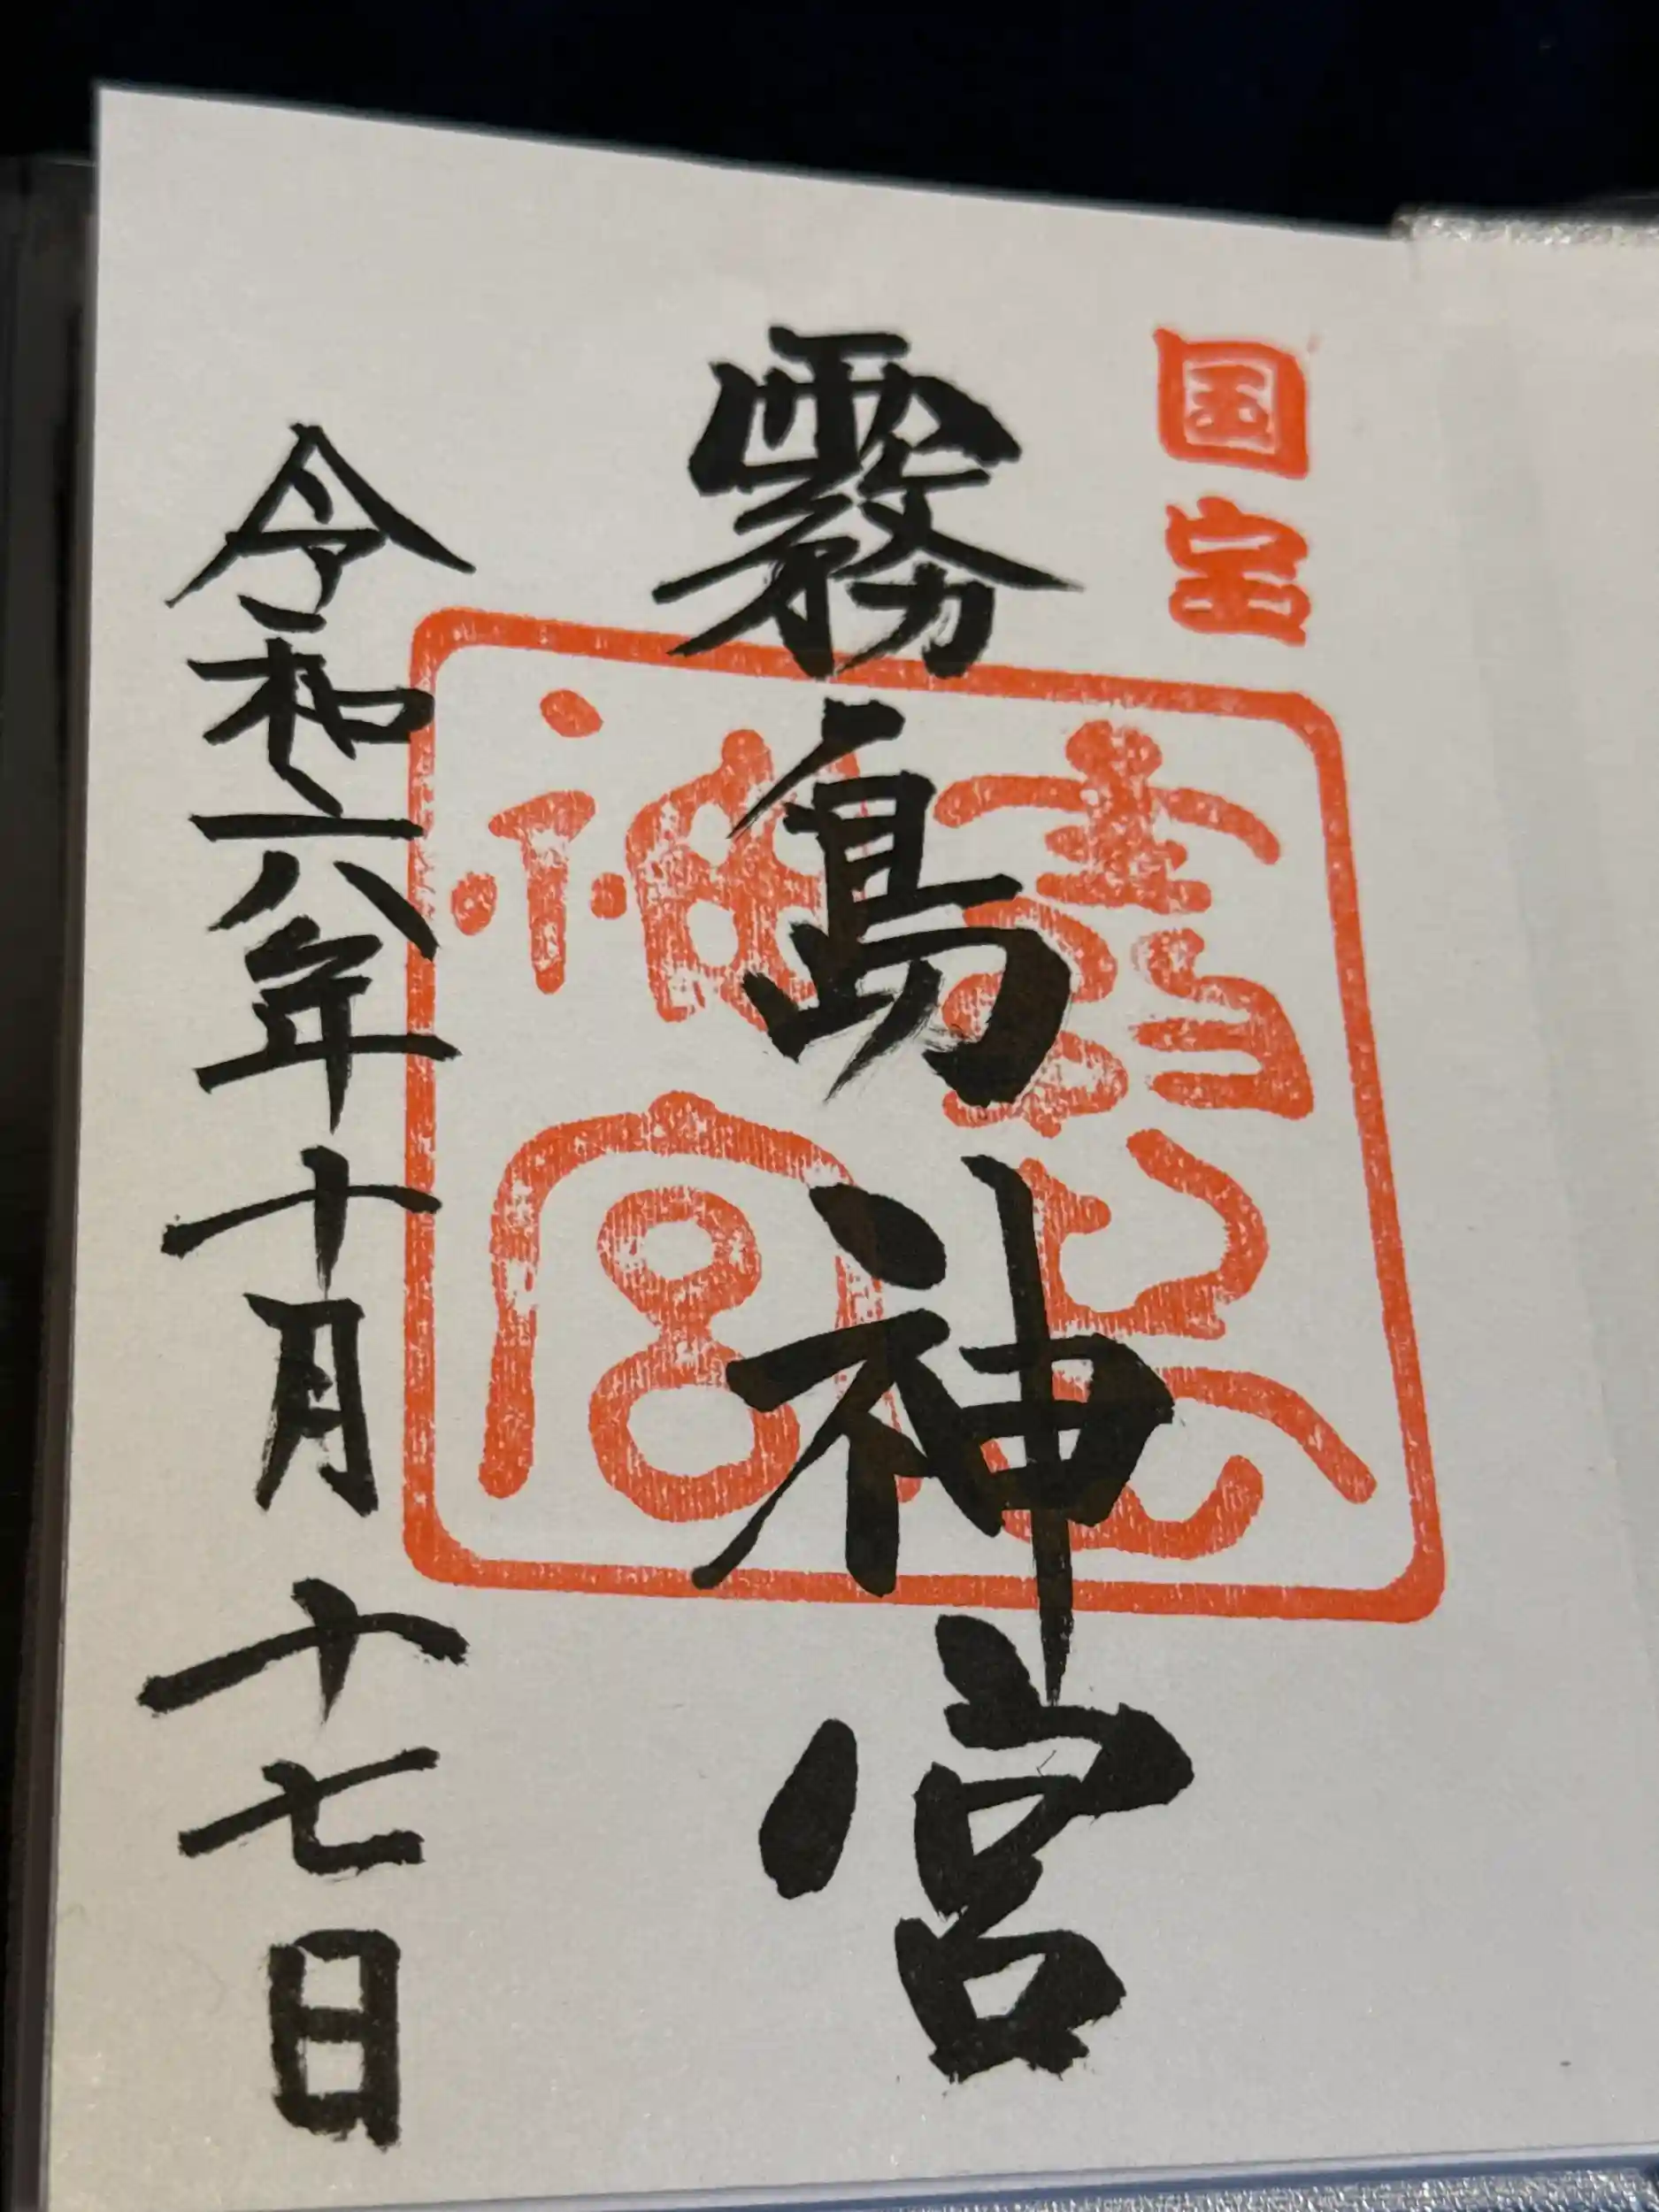 国宝
霧島神宮
霧島神宮
令和六年十月十七日